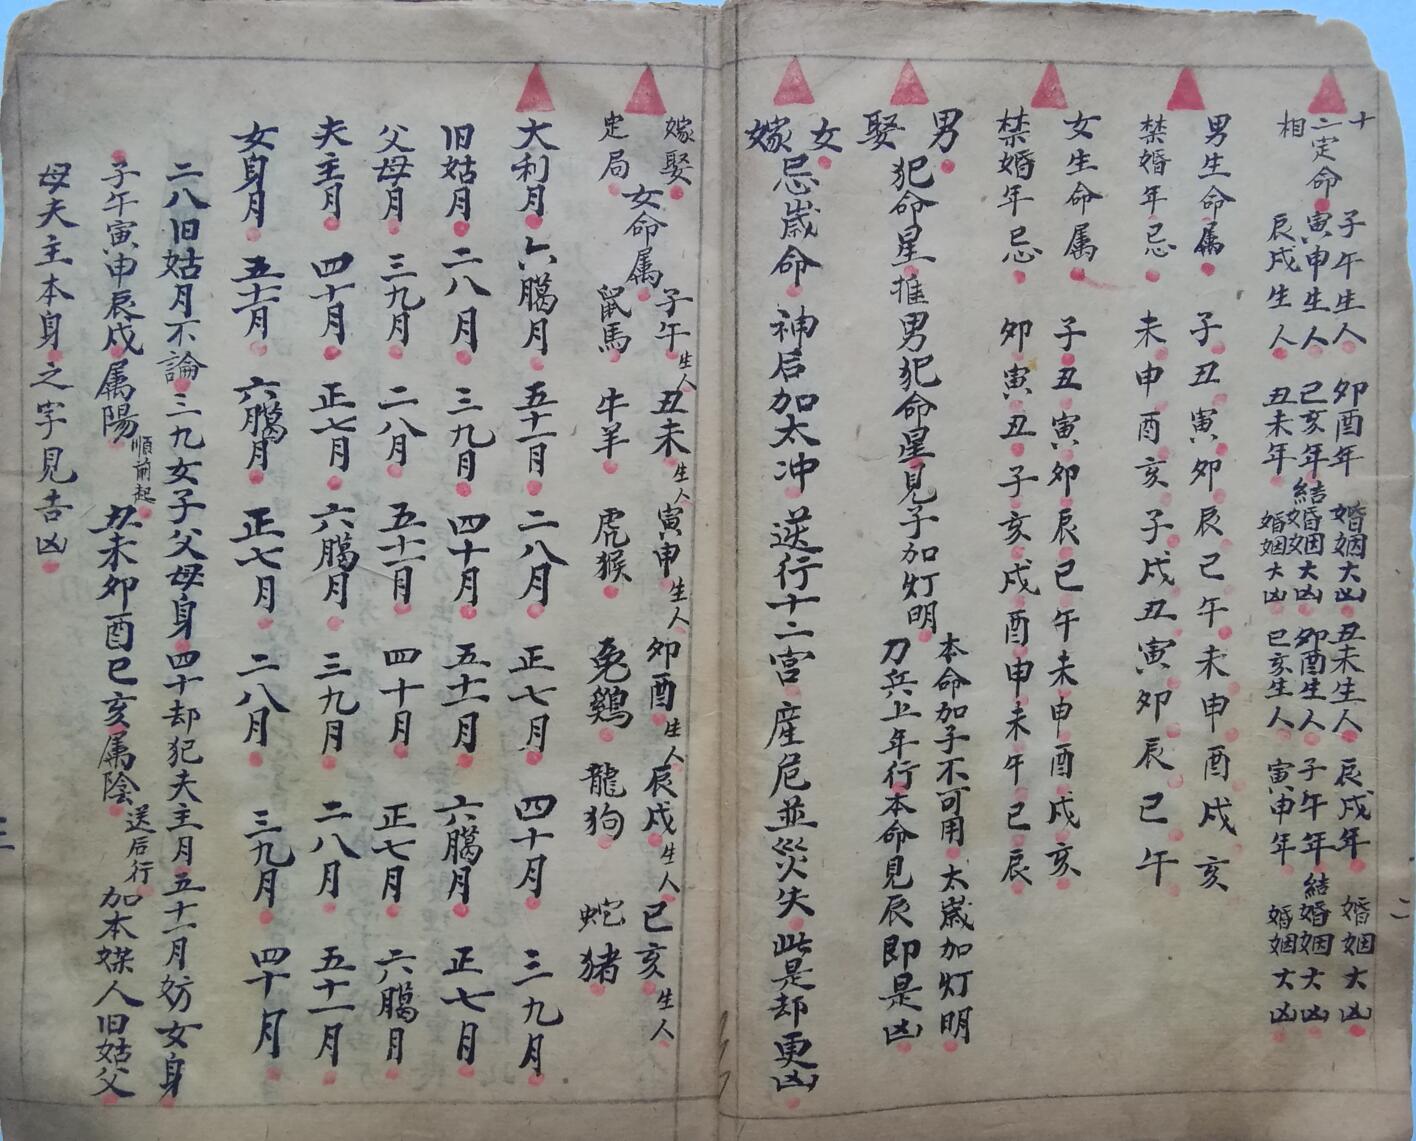 十二定命相
子午生人 卯酉年 婚姻大凶 丑未生人 辰戌年 婚姻大凶
寅申生人 巳亥年 結婚姻大凶 卯酉生人 子午年 結婚姻大凶
辰戌生人 丑未年 婚姻大凶 巳亥生人 寅申年 婚姻大凶
男生命属 子丑寅卯辰己午未申酉戌亥
禁婚年忌 未申酉亥子戌丑寅卯辰己午
女生命属 子丑寅卯辰己午未申酉戌亥
禁婚年忌 卯寅丑子亥戌酉申未午己辰
男娶
犯命星推男犯命星見子加灯明
本命加子不可用太歲加灯明
刀兵上年行本命見辰即是凶
女嫁
忌歲命神后加太冲送行十二宫産危並災失此是却更凶
嫁娶定局
女命属
子午生人 丑未生人 寅申生人 卯酉生人 辰戌生人 己亥生人
鼠馬 牛羊 虎猴 兔鷄 龍狗 蛇猪
大利月 六臈月 五十一月 二八月 正七月 四十月 三九月
旧姑月 二八月 三九月 四十月 五十一月 六臈月 正七月
父母月 三九月 二八月 五十一月 四十月 正七月 六臈月
夫主月 四十月 正七月 六臈月 三九月 二八月 五十一月
女身月 五十一月 六臈月 正七月 二八月 三九月 四十月
二八旧姑月不論三九女子父母身四十却犯夫主月五十一月妨女身
子午寅申辰戌属陽順前起丑未卯酉巳亥属陰送后行加本媒人旧姑父
母夫主本身之字見吉凶
二
三